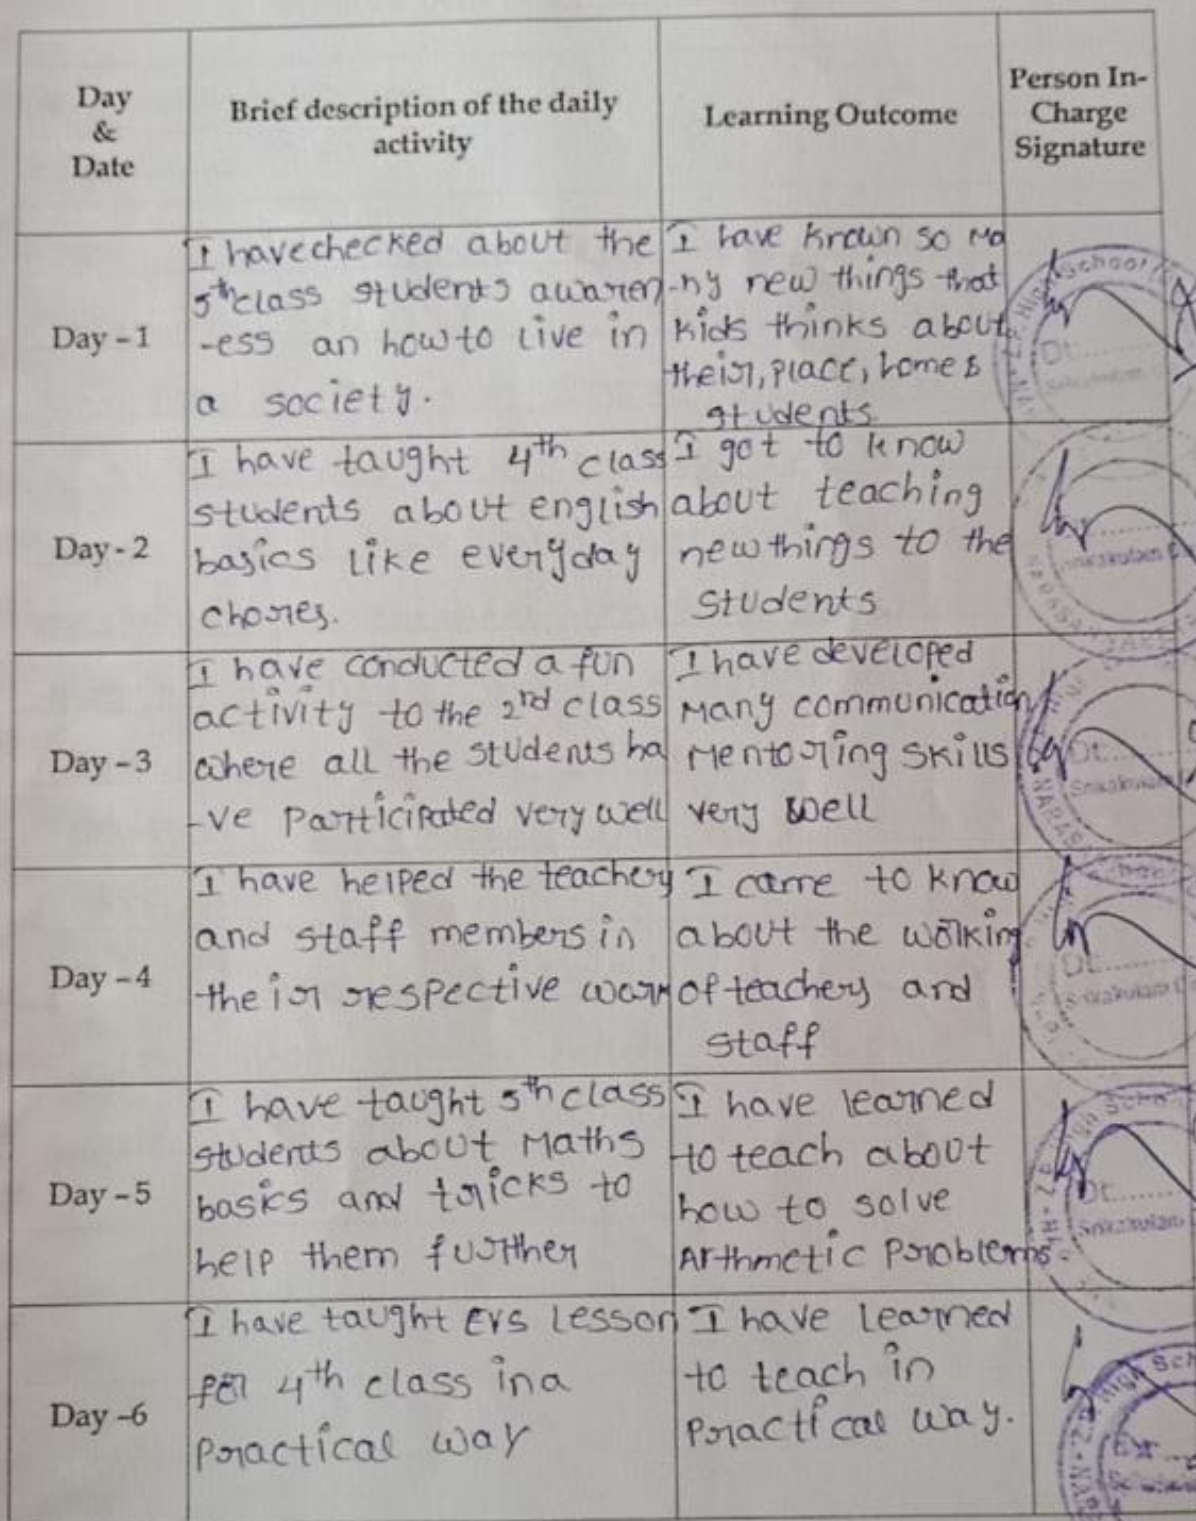 Day
&
Date
Brief description of the daily
activity
Learning Outcome
Person In-
Charge
Signature
Day - 1
I have checked about the
5th class students awaren
-ess an how to live in
a society.
I have known so Ma
-ny new things that
kids thinks about
their, place, home &
students
School
Day - 2
I have taught 4th class
students about english
basics like everyday
chores.
I got to know
about teaching
new things to the
students
Srikakulam
Day - 3
I have conducted a fun
activity to the 2nd class
where all the students ha
-ve participated very well
I have developed
Many communication
Mentoring skills
very well
Dt.......
Day - 4
I have helped the teachers
and staff members in
their respective work
I came to know
about the working
of teachers and
staff
Dt.......
Srikakulam
Day - 5
I have taught 5th class
students about Maths
basics and tricks to
help them further
I have learned
to teach about
how to solve
Arthmetic Problems
Dt.......
Srikakulam
Day -6
I have taught EVS lesson
for 4th class in a
Practical way
I have learned
to teach in
Practical way.
High Sch